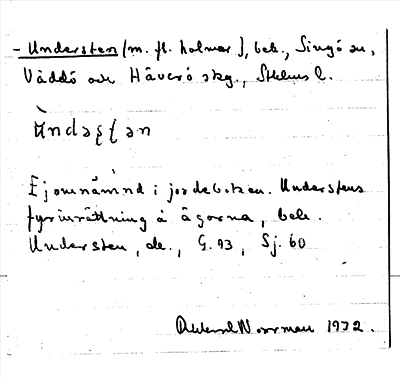 - Understen (m. fl. holmar), beb., Singö sn,
Väddö och Häverö skg., Sthlms l.
Ej omnämnd i jordeboken. Understens
fyrinrättning å ägorna, beb.
Understen, de., G. 93, Sj. 60
Norrman 1932.